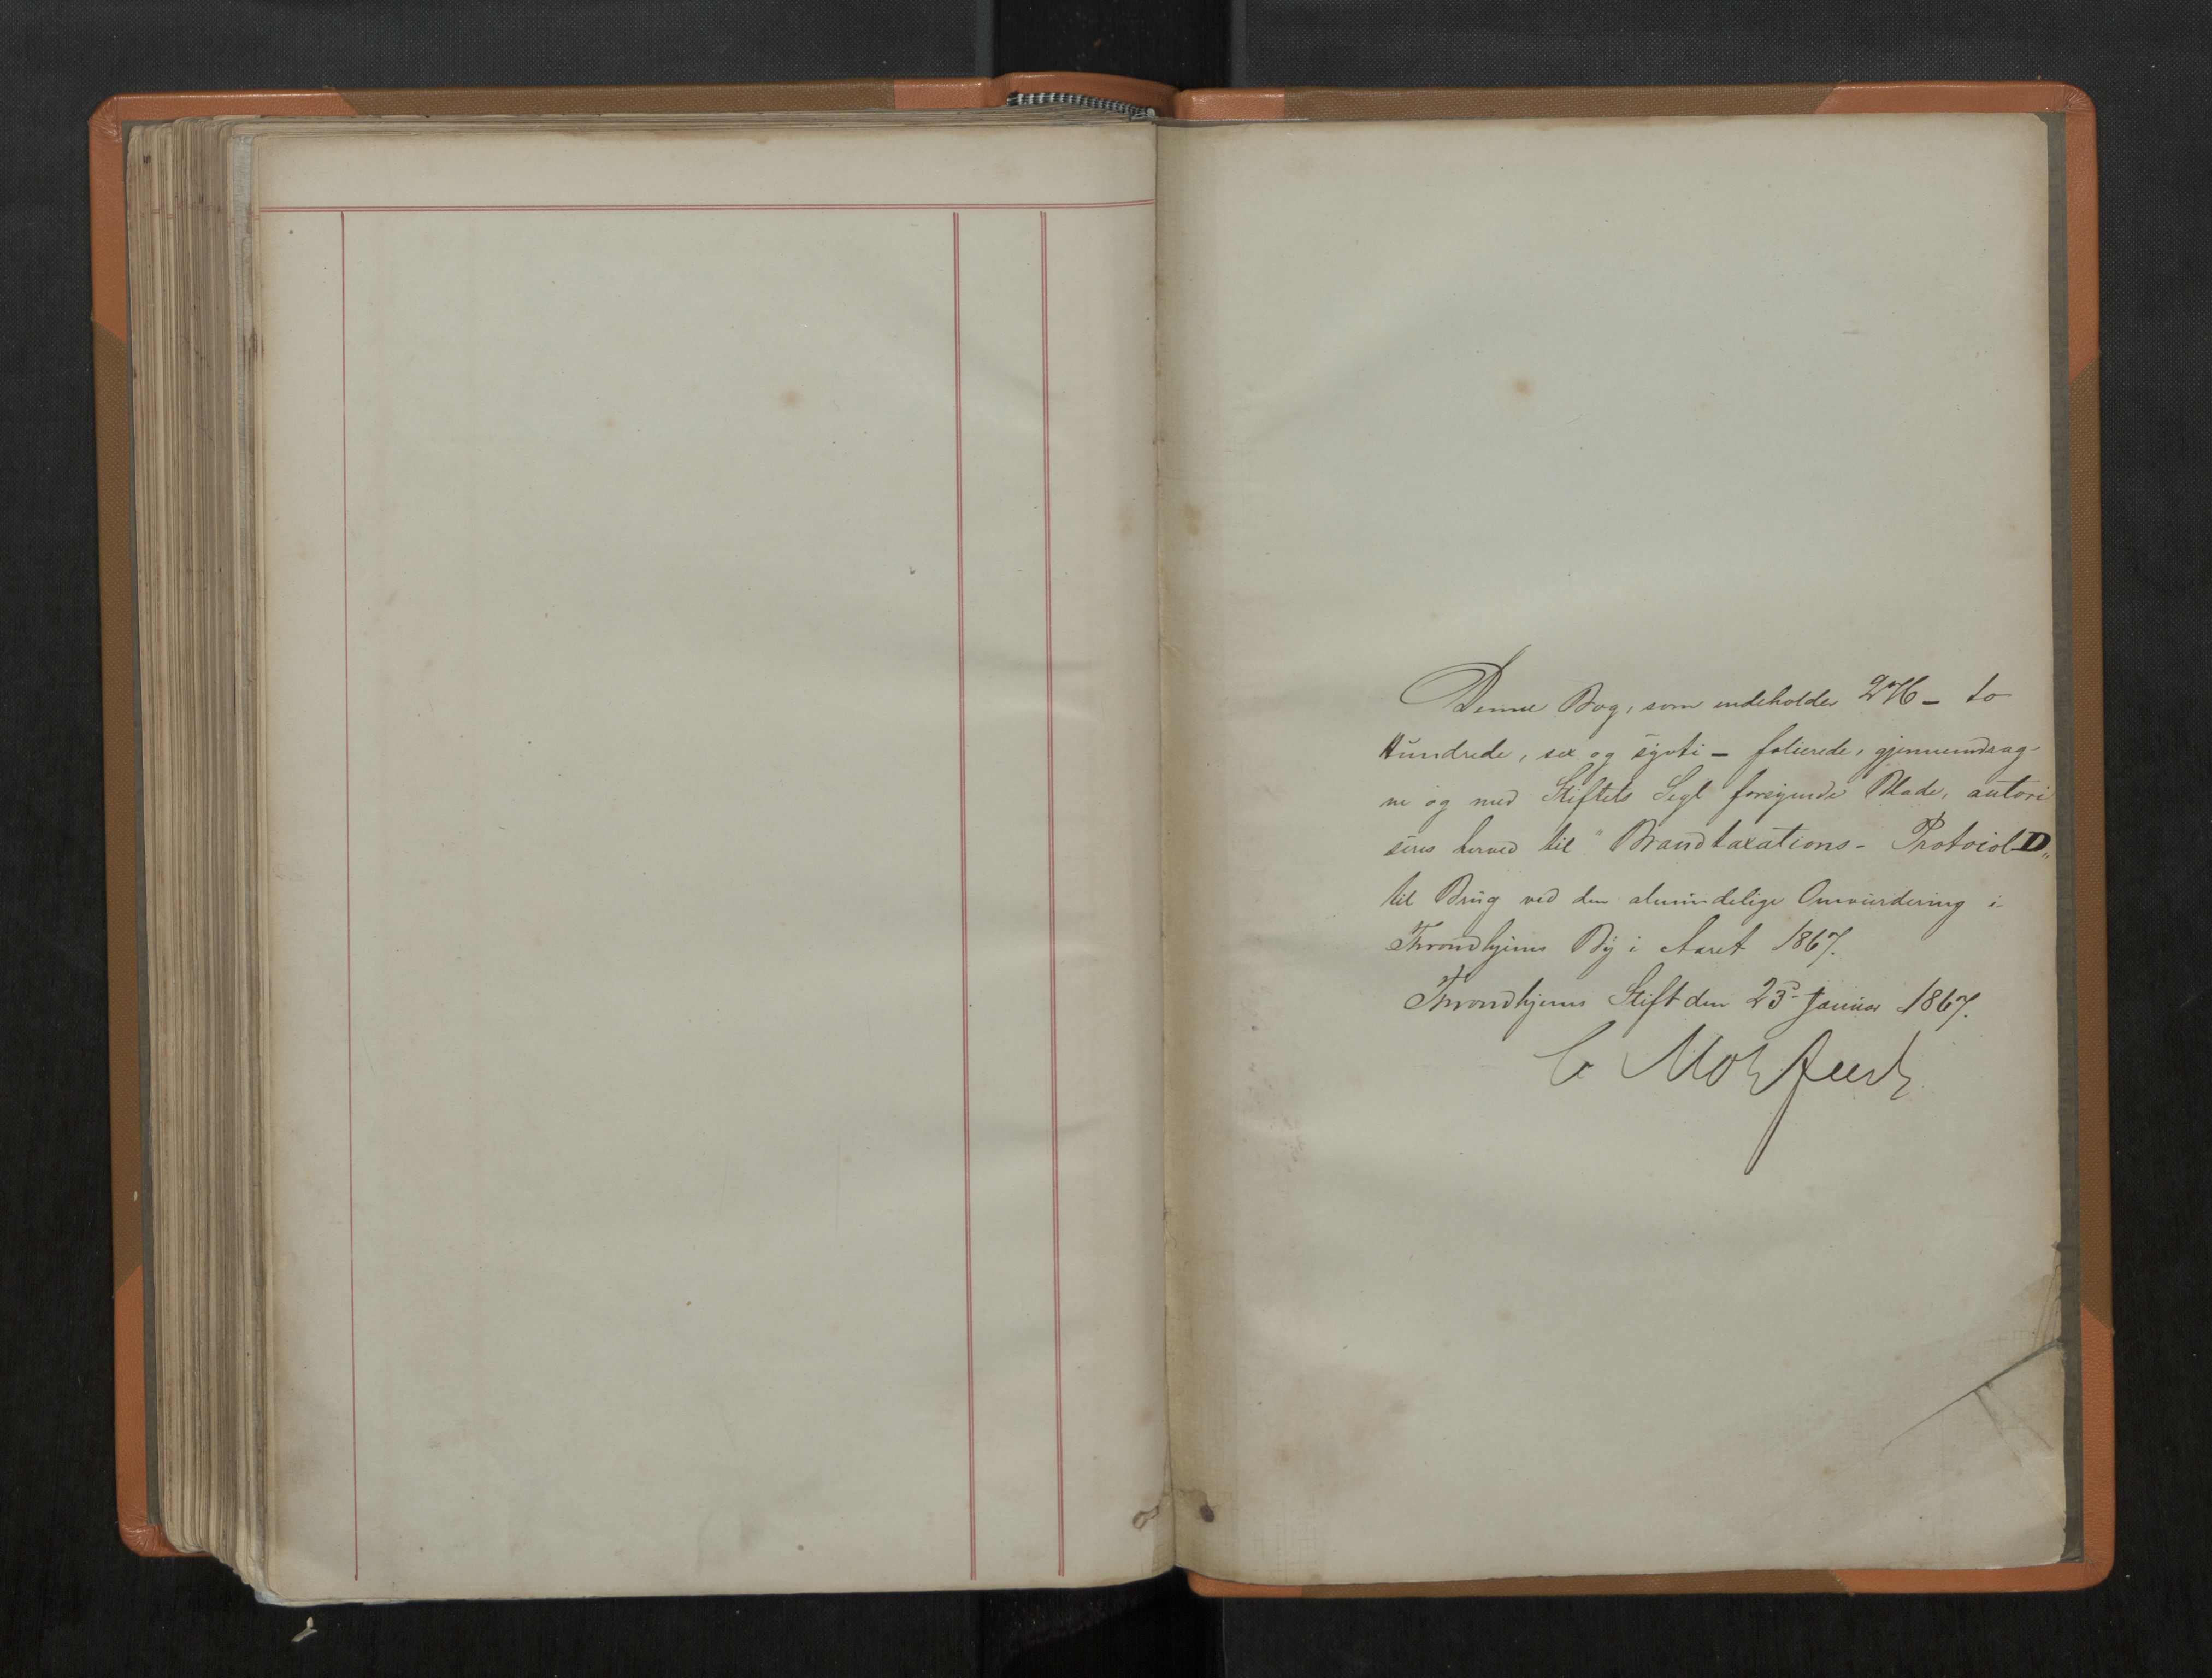 Denne Bog, som indeholder 276 – to
Hundrede, sex og sÿvti – folierede, gjennemdrag-
ne og med Stiftets Segl forsynede Blade, autori
seres herved til "Brandtaxations- Protocol D„
til Brug ved den almindelige Omvurdering i
Throndhjems By i Aaret 1867.
Throndhjems Stift den 23d Januar 1867.
C Motzfeldt